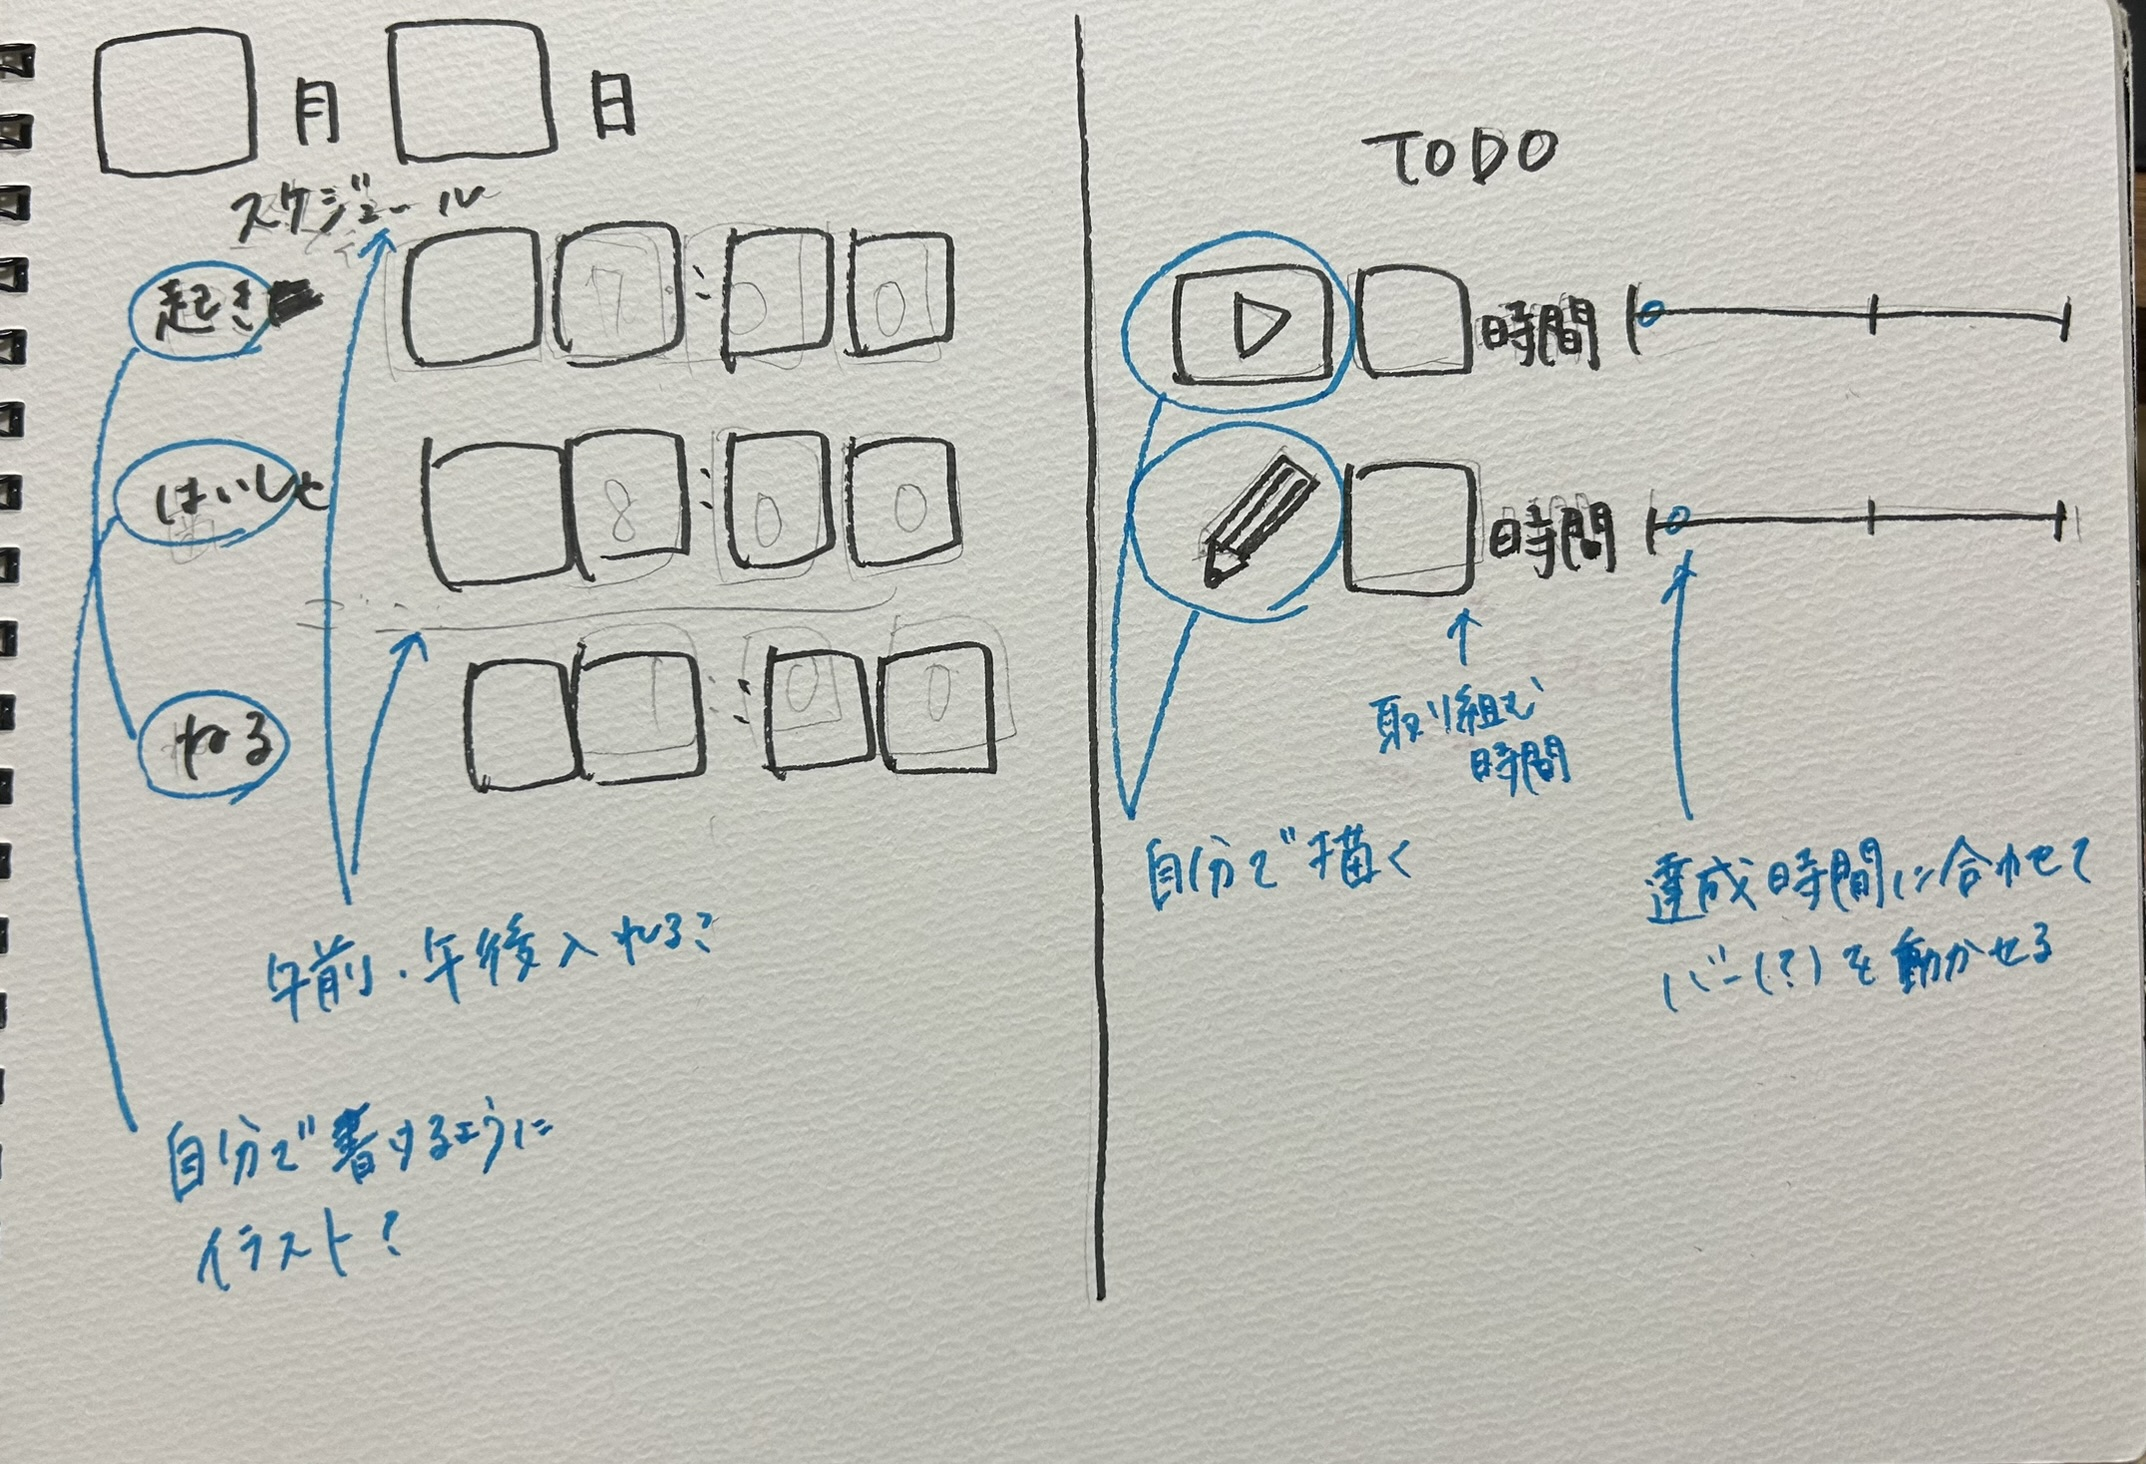 月 日
スケジュール
起き 7:00
はいしゃ 8:00
ねる 1:00
午前・午後入れる?
自分で書けるように
イラスト?
TODO
時間
時間
取り組む
時間
自分で描く
達成時間に合わせて
バー(?)を動かせる